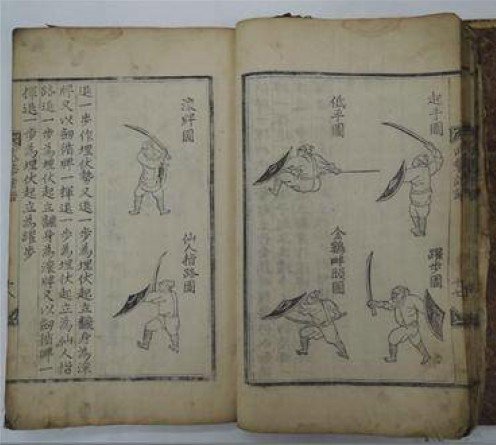 起手圖
躍步圖
低平圖
金鷄畔頭圖
滾牌圖
仙人指路圖
退一步作埋伏勢又退一步為埋伏起立飜身為滾
牌又以劒揹牌一揮退一步為埋伏起立為仙人指
路退一步為埋伏起立飜身為滾牌又以劒揹牌一
揮退一步為埋伏起立為躍步